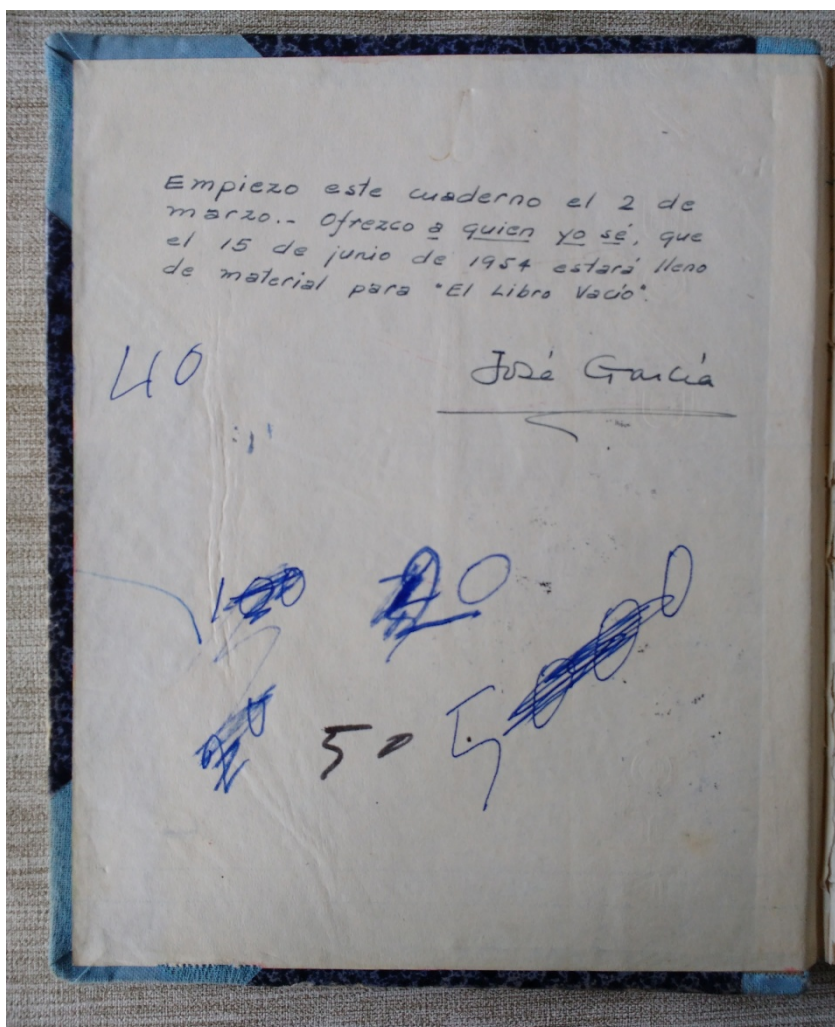 Empiezo este cuaderno el 2 de
marzo.- Ofrezco a quien yo sé, que
el 15 de junio de 1954 estará lleno
de material para "El Libro Vacío".
José García
40
20
50
5000